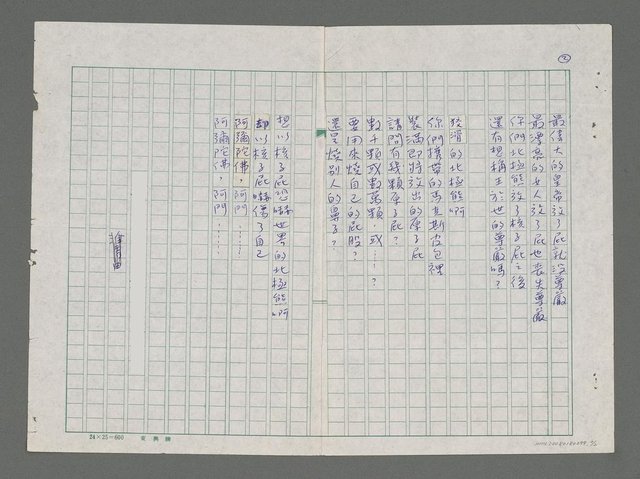 ②
最偉大的皇帝放了屁就沒尊嚴
最漂亮的女人放了屁也喪失尊嚴
你們北極熊放了核子屁之後
還有想稱王於世的尊嚴嗎？
狡滑的北極熊啊
你們攜帶的馬克斯皮包裡
裝滿即將放出的原子屁
請問有幾顆原子屁？
數千顆或數萬顆，或……？
要用來燒自己的屁股？
還是燒別人的鼻子？
想以核子屁恐嚇世界的北極熊啊
卻以核子屁嚇傷了自己
阿彌陀佛，阿門……
阿彌陀佛，阿門……
24×25＝600